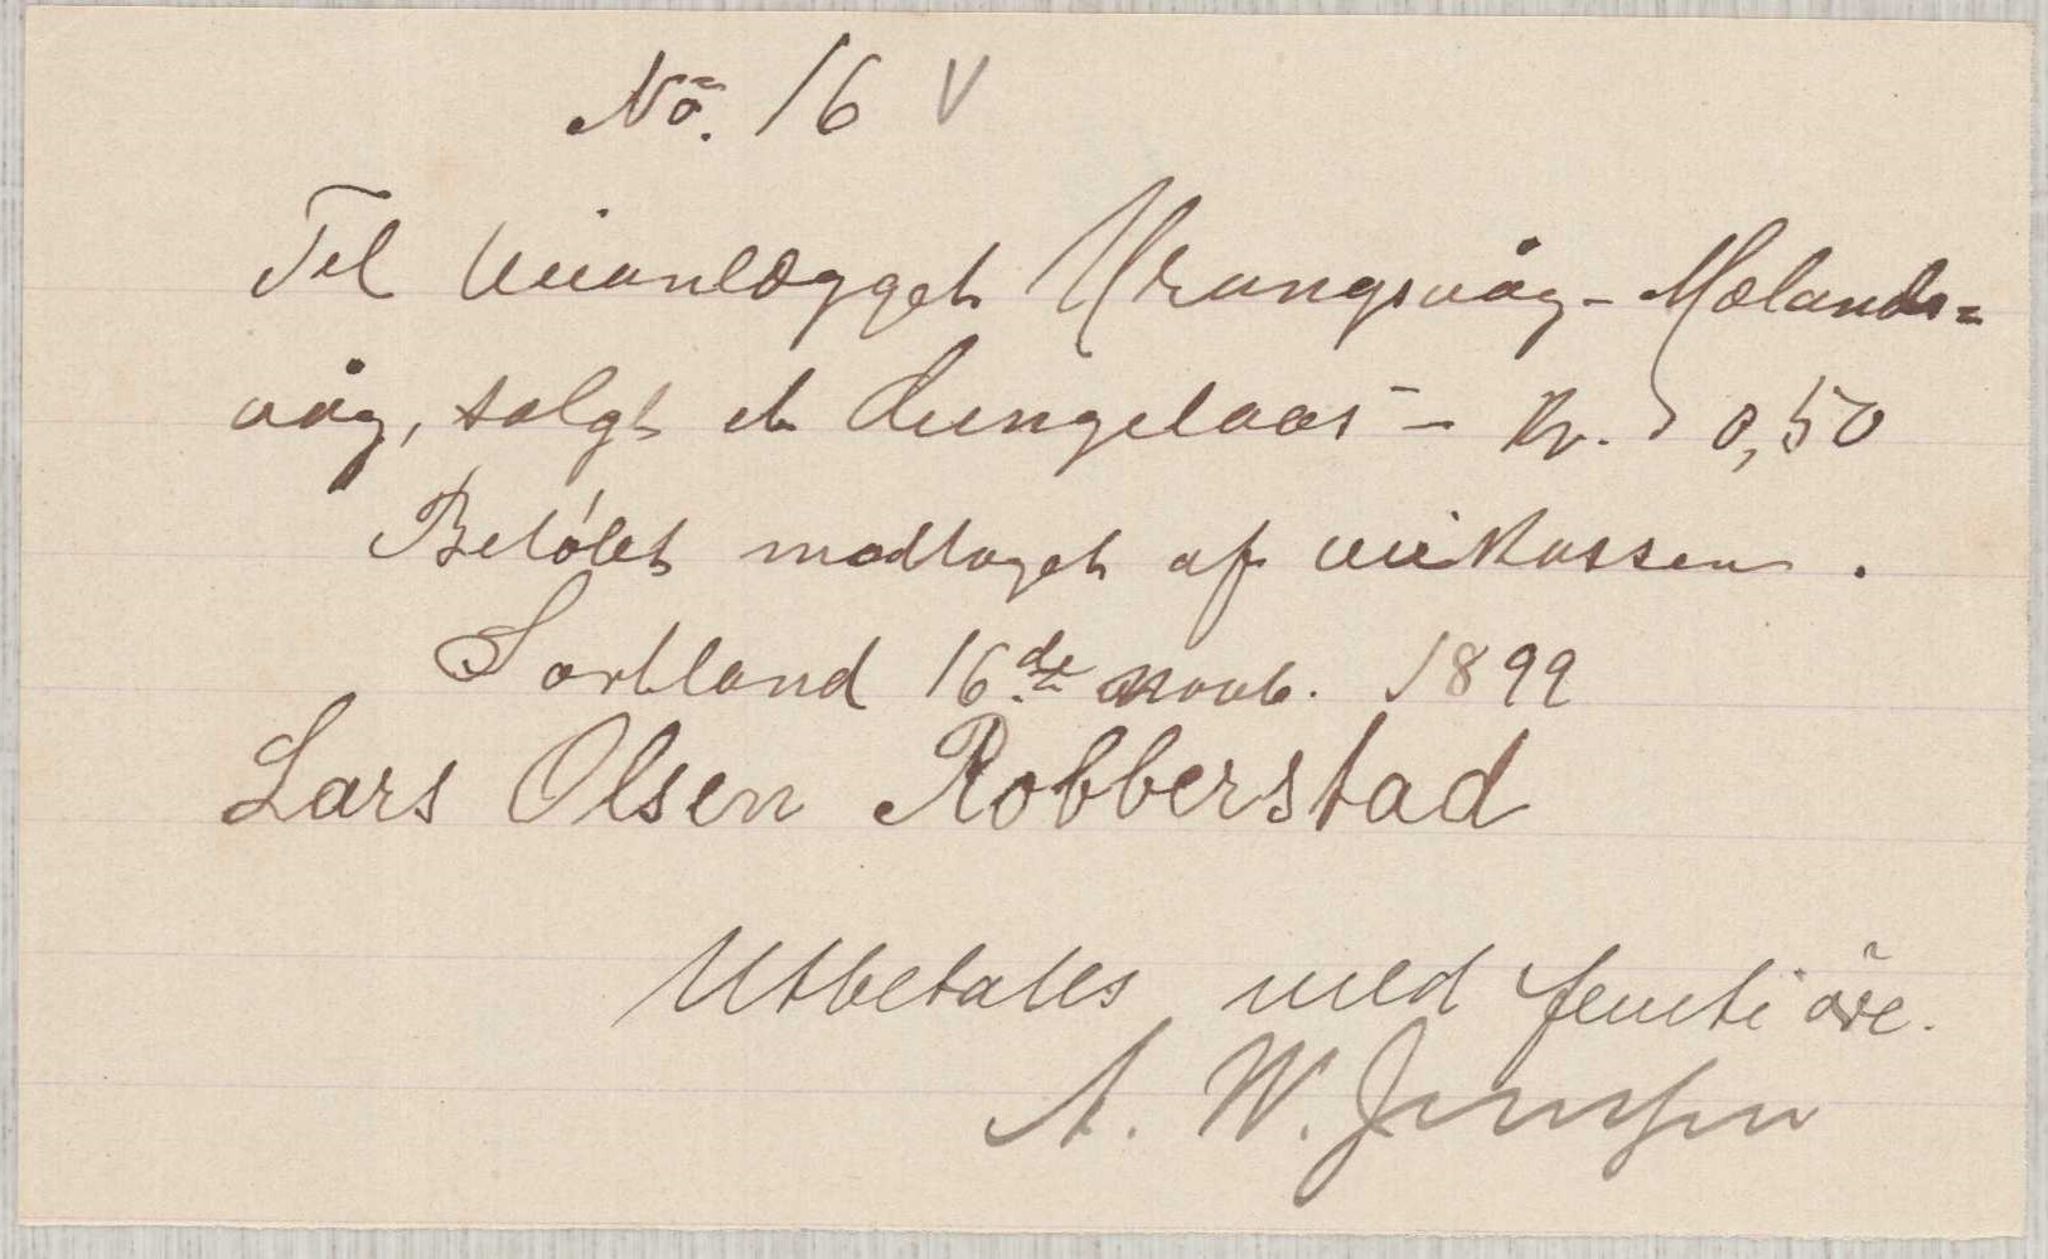 No. 16 V
Til veianlægget Urangsvåg - Mælands=
våg, solgt et hengelaas - Kr. 0,50
Beløbet modtaget af veikassen.
Sortland 16de novb. 1899
Lars Olsen Robberstad
Utbetales med femti øre.
A. W. Jenssen